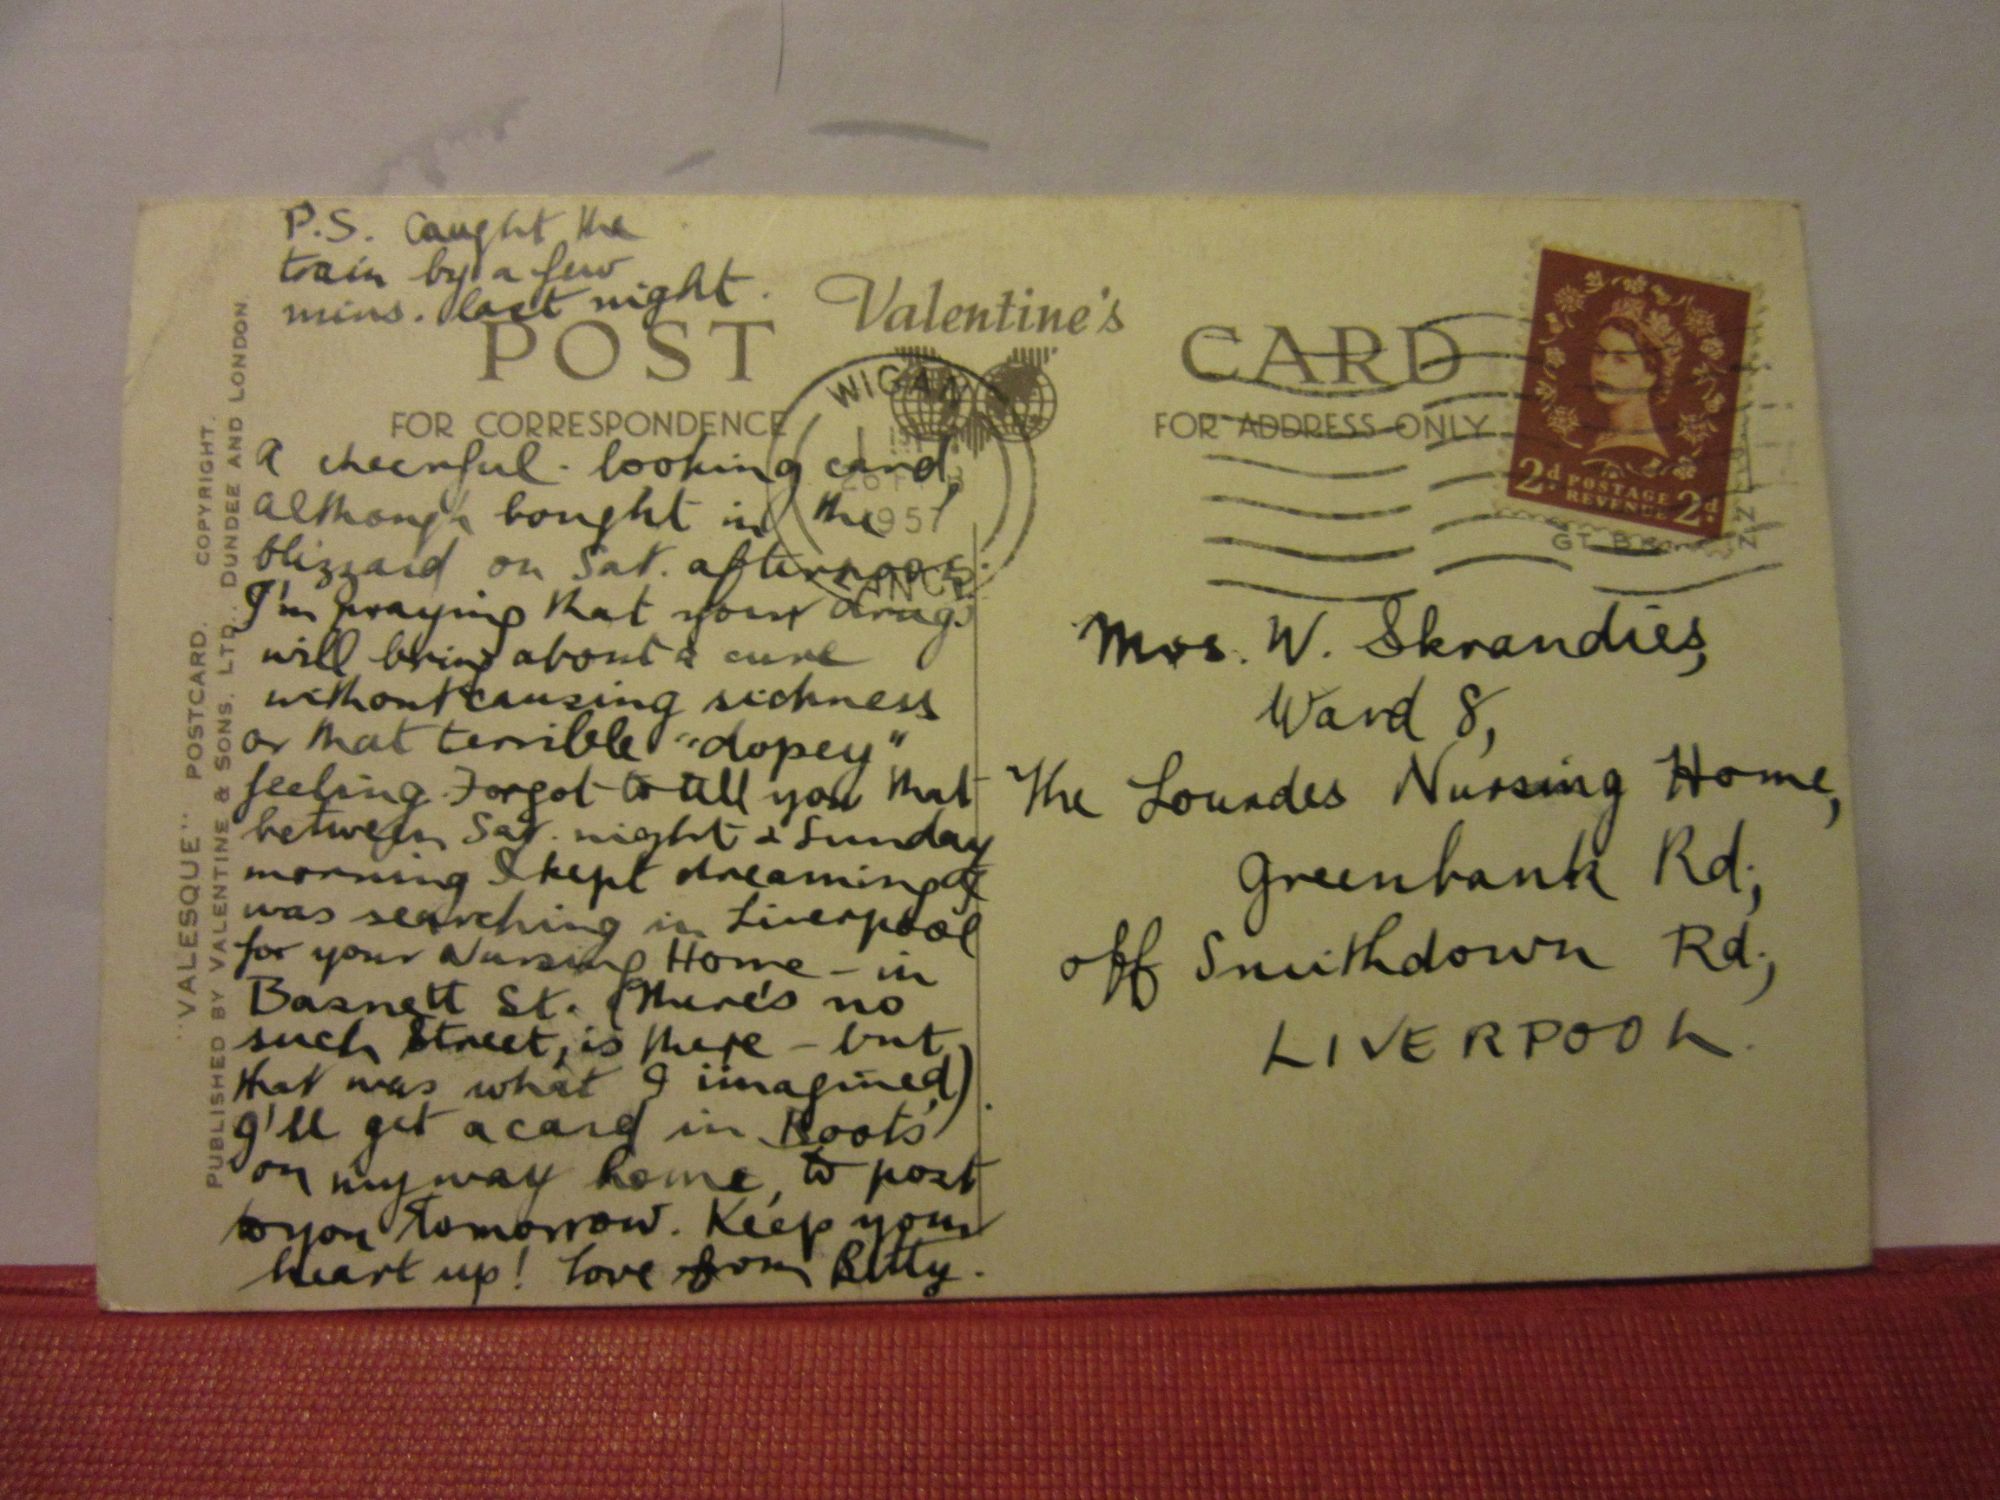 P.S. Caught the
train by a few
mins. last night.
Valentine's
POST CARD
FOR CORRESPONDENCE
FOR ADDRESS ONLY
WIGAN
1957
LANCS
2d POSTAGE REVENUE 2d
A cheerful-looking card,
although bought in the
blizzard on Sat. afternoon.
I'm praying that your drugs
will bring about a cure
without causing sickness
or that terrible "dopey"
feeling. Forgot to tell you that
between Sat. night & Sunday
morning I kept dreaming I
was searching in Liverpool
for your Nursing Home - in
Basnett St. (there's no
such street, is there - but
that was what I imagined).
I'll get a card in Boots'
on my way home, to post
to you tomorrow. Keep your
heart up! Love from Betty.
Mrs. W. Skrandies,
Ward 8,
The Lourdes Nursing Home,
Greenbank Rd.,
off Smithdown Rd.,
LIVERPOOL.
"VALESQUE" POSTCARD. COPYRIGHT.
PUBLISHED BY VALENTINE & SONS. LTD., DUNDEE AND LONDON.